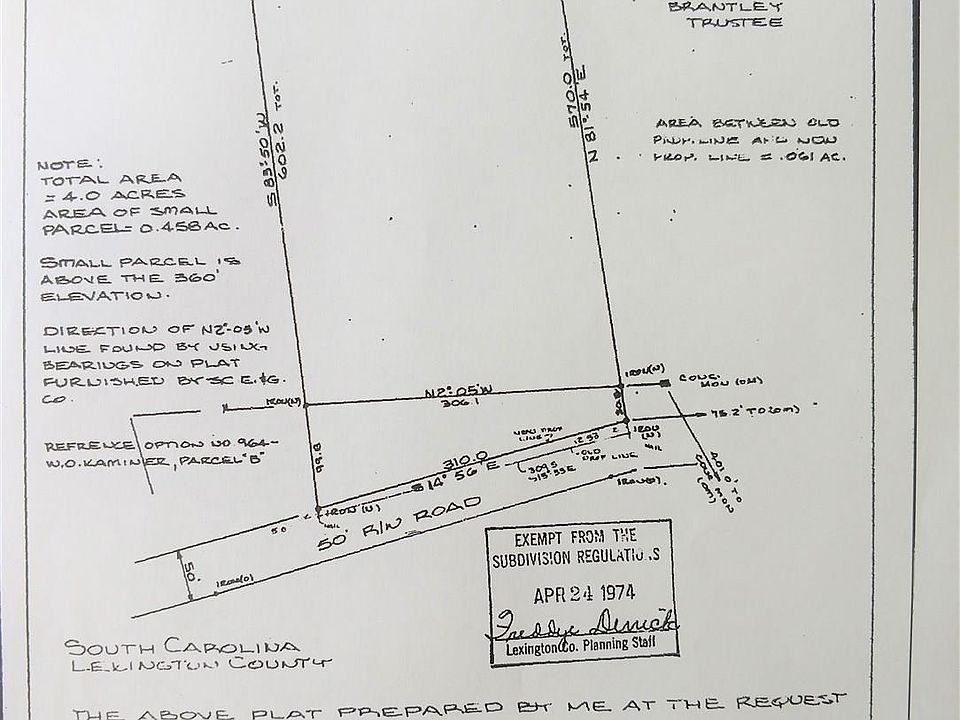 BRANTLEY
TRUSTEE
S 83°-50' W
602.2 TOT.
570.0 TOT.
N 81°-54' E
AREA BETWEEN OLD
PROP. LINE AND NEW
PROP. LINE = .061 AC.
NOTE:
TOTAL AREA
= 4.0 ACRES
AREA OF SMALL
PARCEL = 0.458 AC.
SMALL PARCEL IS
ABOVE THE 360'
ELEVATION.
DIRECTION OF N2°-05'W
LINE FOUND BY USING
BEARINGS ON PLAT
FURNISHED BY SC E.&G.
CO.
REFRENCE OPTION NO. 964-
W.O. KAMINER, PARCEL "B"
IRON(N)
N2°-05'W
306.1
IRON(N)
CONC.
MON (OM)
75.2' TO (OM)
IRON
(N)
NAIL
NEW PROP
LINE
OLD
PROP LINE
310.0
S 14° 56' E
309.5
IRON (N)
NAIL
50
50' R/W ROAD
IRON(O).
401.0' TO
CONC MON
(OM)
50'
IRON(O)
EXEMPT FROM THE
SUBDIVISION REGULATIONS
APR 24 1974
Freddye Derrick
Lexington Co. Planning Staff
SOUTH CAROLINA
LEXINGTON COUNTY
THE ABOVE PLAT PREPARED BY ME AT THE REQUEST